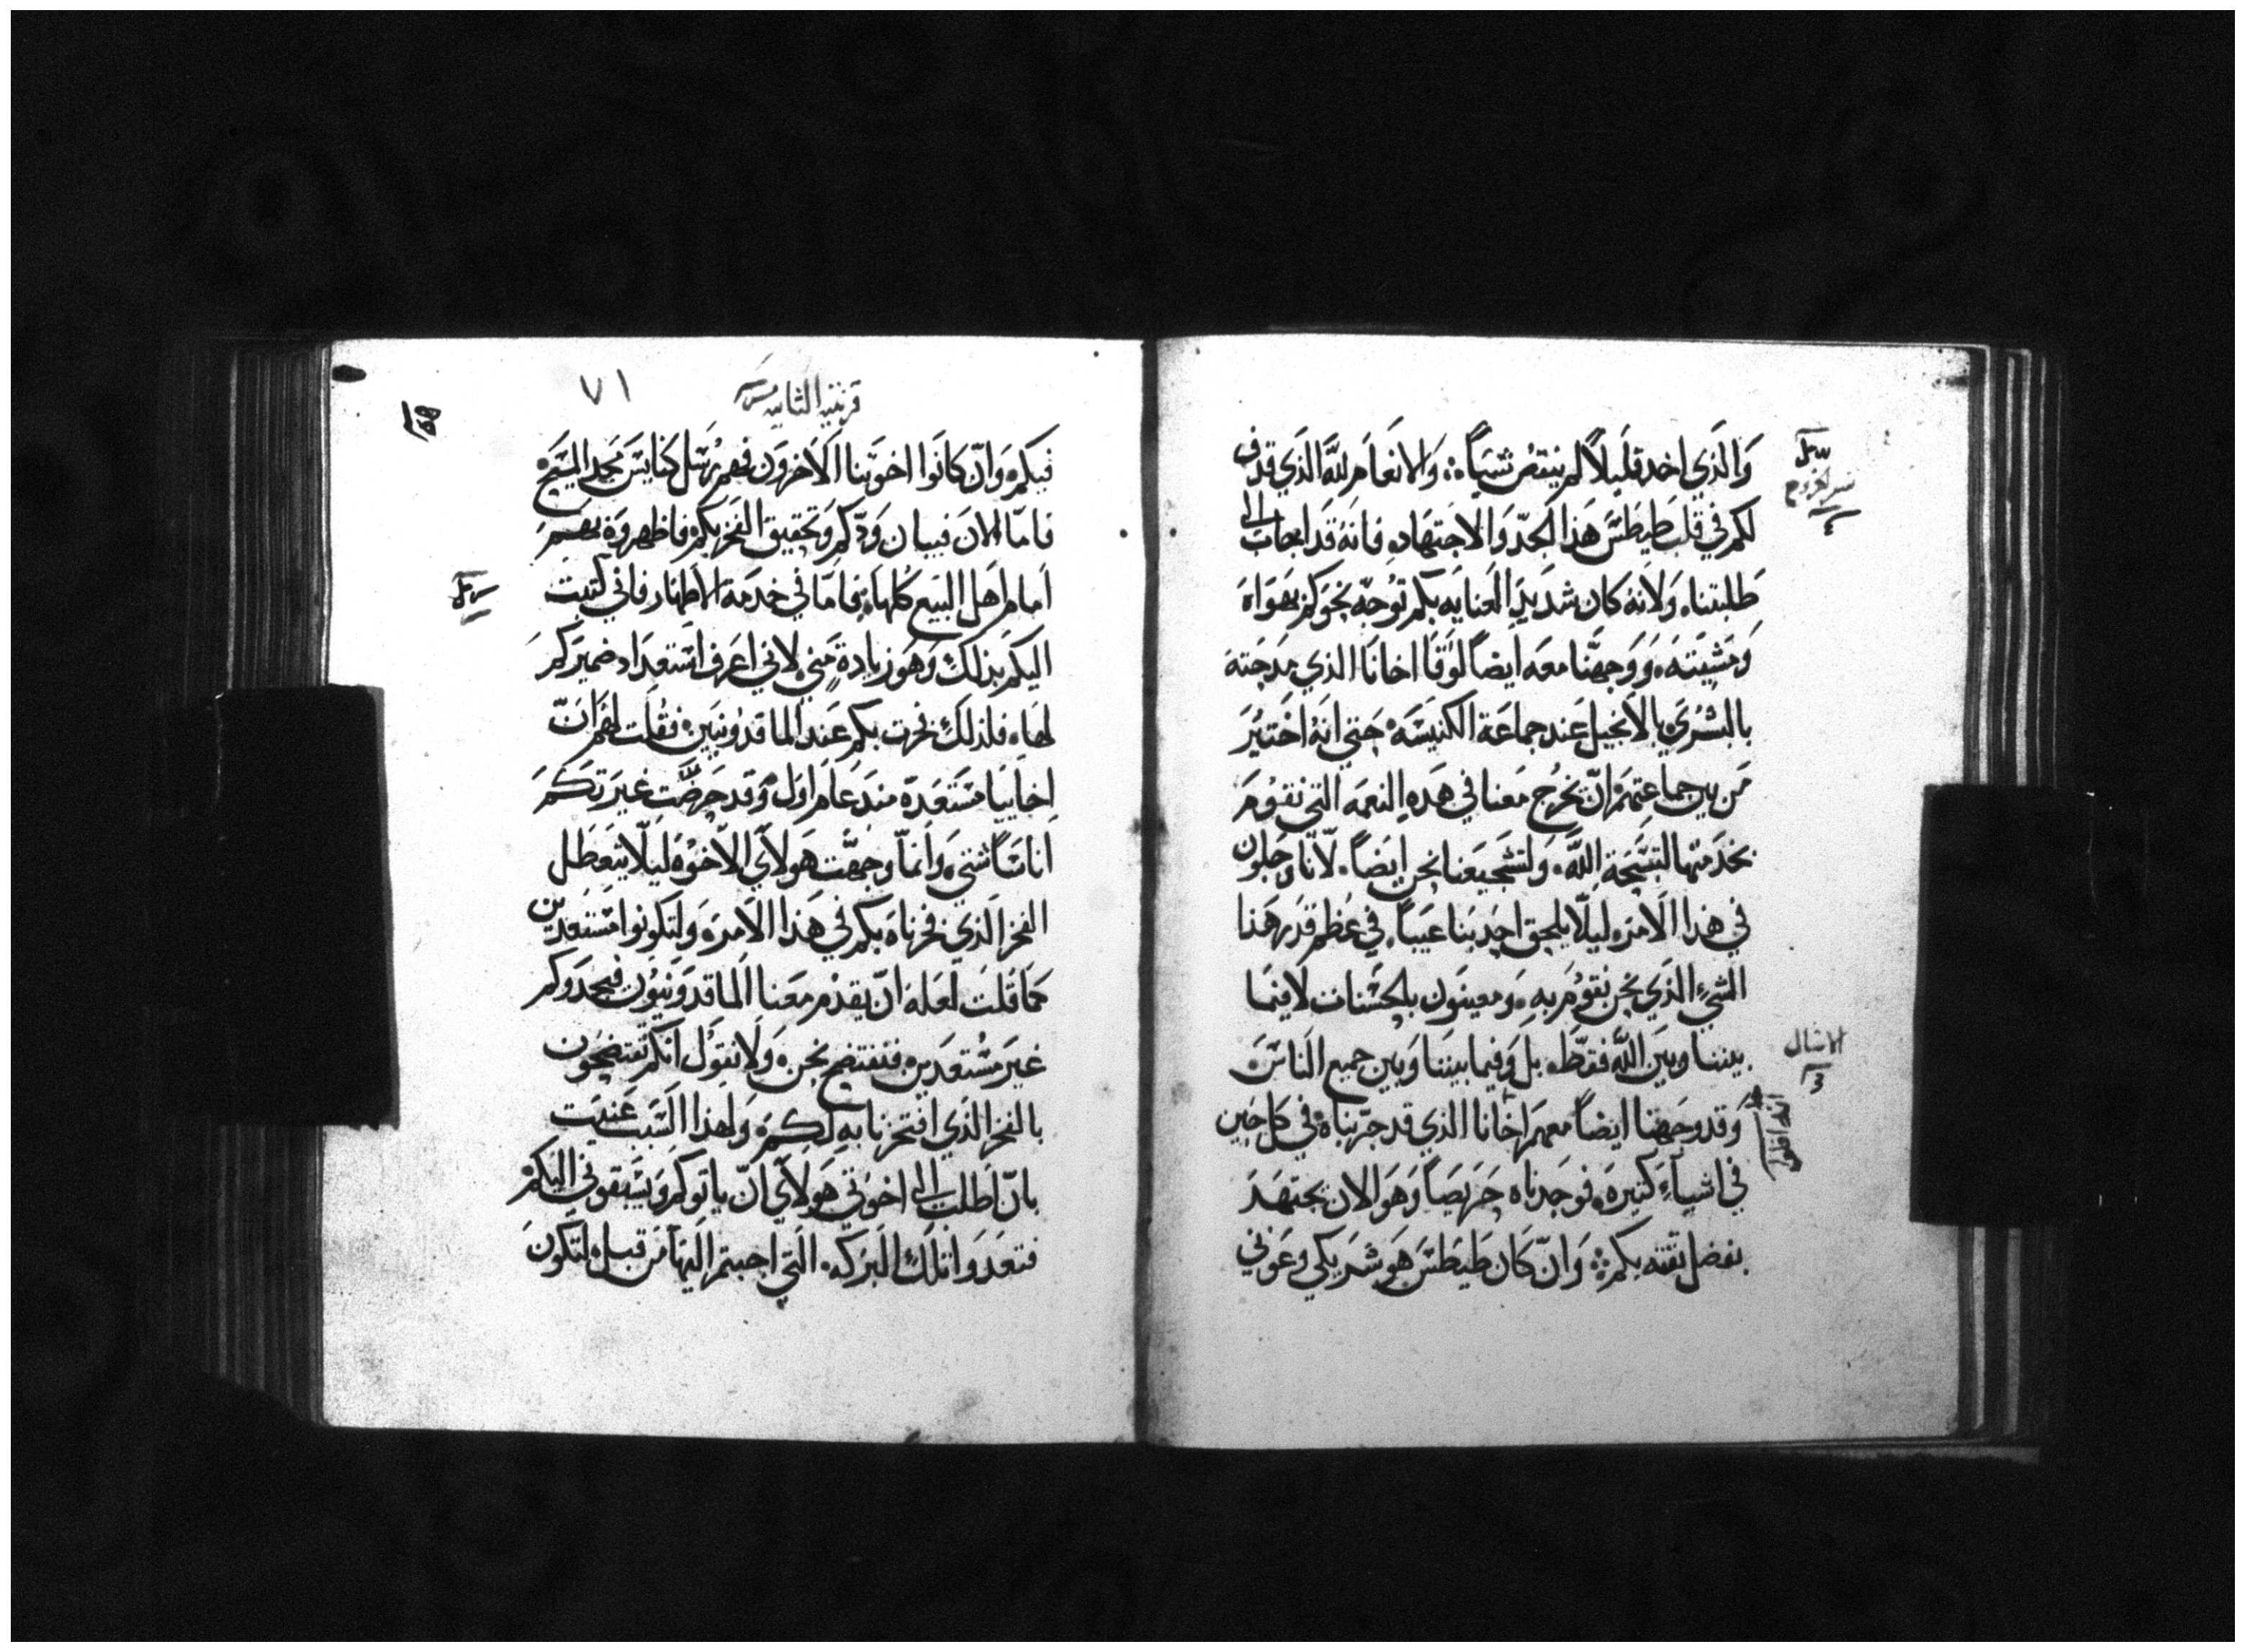 والذي اخد قليلاً لم ينتقص شيياً ۞ والانعام لله الذي قدف
لكم في قلب طيطس هذا الجدّ والاجتهاد، فانه قد اجاب الى
طلبتنا، ولانه كان شديد العنايه بكم توجه نحوكم بهواه
ومشيته، ووجهنا معه ايضاً لوقا اخانا الذي مدحته
بالبشرى بالانجيل عند جماعة الكنيسه، حتى انه اختير
من بين جماعتهم ان يخرج معنا في هذه النعمه التي نقوم
بخدمتها لتسبحة الله، ولتشجيعنا نحن ايضاً، لانا وجلون
في هذا الامر، ليلّا يلحق احد بنا عيباً، في عظم قدر هذا
الشيء الذي نحن نقوم به، ومعينون بالحسنات لا فيما
بيننا وبين الله فقط، بل وفيما بيننا وبين جميع الناس
وقد وجهنا ايضاً معهم اخانا الذي قد جرّبناه في كل حين
في اشياء كتيره، فوجدناه حريصاً وهو الان مجتهد
بفضل ثقته بكم ۞ وان كان طيطس هو شريكي وعوني
الامثال
٣
قرنتيه الثانيه
٧١
فيكم، وان كانوا اخوتنا الاخرون فهم رسل كنايس مجد المسيح
فاما الان فبيان ودّكم وتحقيق الفخر بكم فاظهروه بهم
امام اهل البيع كلها، فاما في خدمة الاطهار فاني كتبت
اليكم بذلك وهو زيادة مني، لاني اعرف استعداد ضميركم
لها، فلذلك فخرت بكم عند الماقدونيين، فقلت لهم ان
اخاييا مستعدة مند عام اول، وقد حرضت غيرتكم
اناساً شتى، وانما وجهت هولاي الاخوه ليلا يتعطل
الفخر الذي فخرناه بكم في هذا الامر، ولتكونوا مستعدين
كما قلت لعله ان يقدم معنا الماقدونيون فيجدوكم
غير مستعدين، فنفتضح نحن، ولا نقول انكم تفتضحون
بالفخر الذي افتخرنا به لكم، ولهذا السبب عنيت
بان اطلب الى اخوتي هولاي ان ياتوكم ويسبقوني اليكم
فتعدوا تلك البركه، التي اجبتم اليها من قبل، لتكون